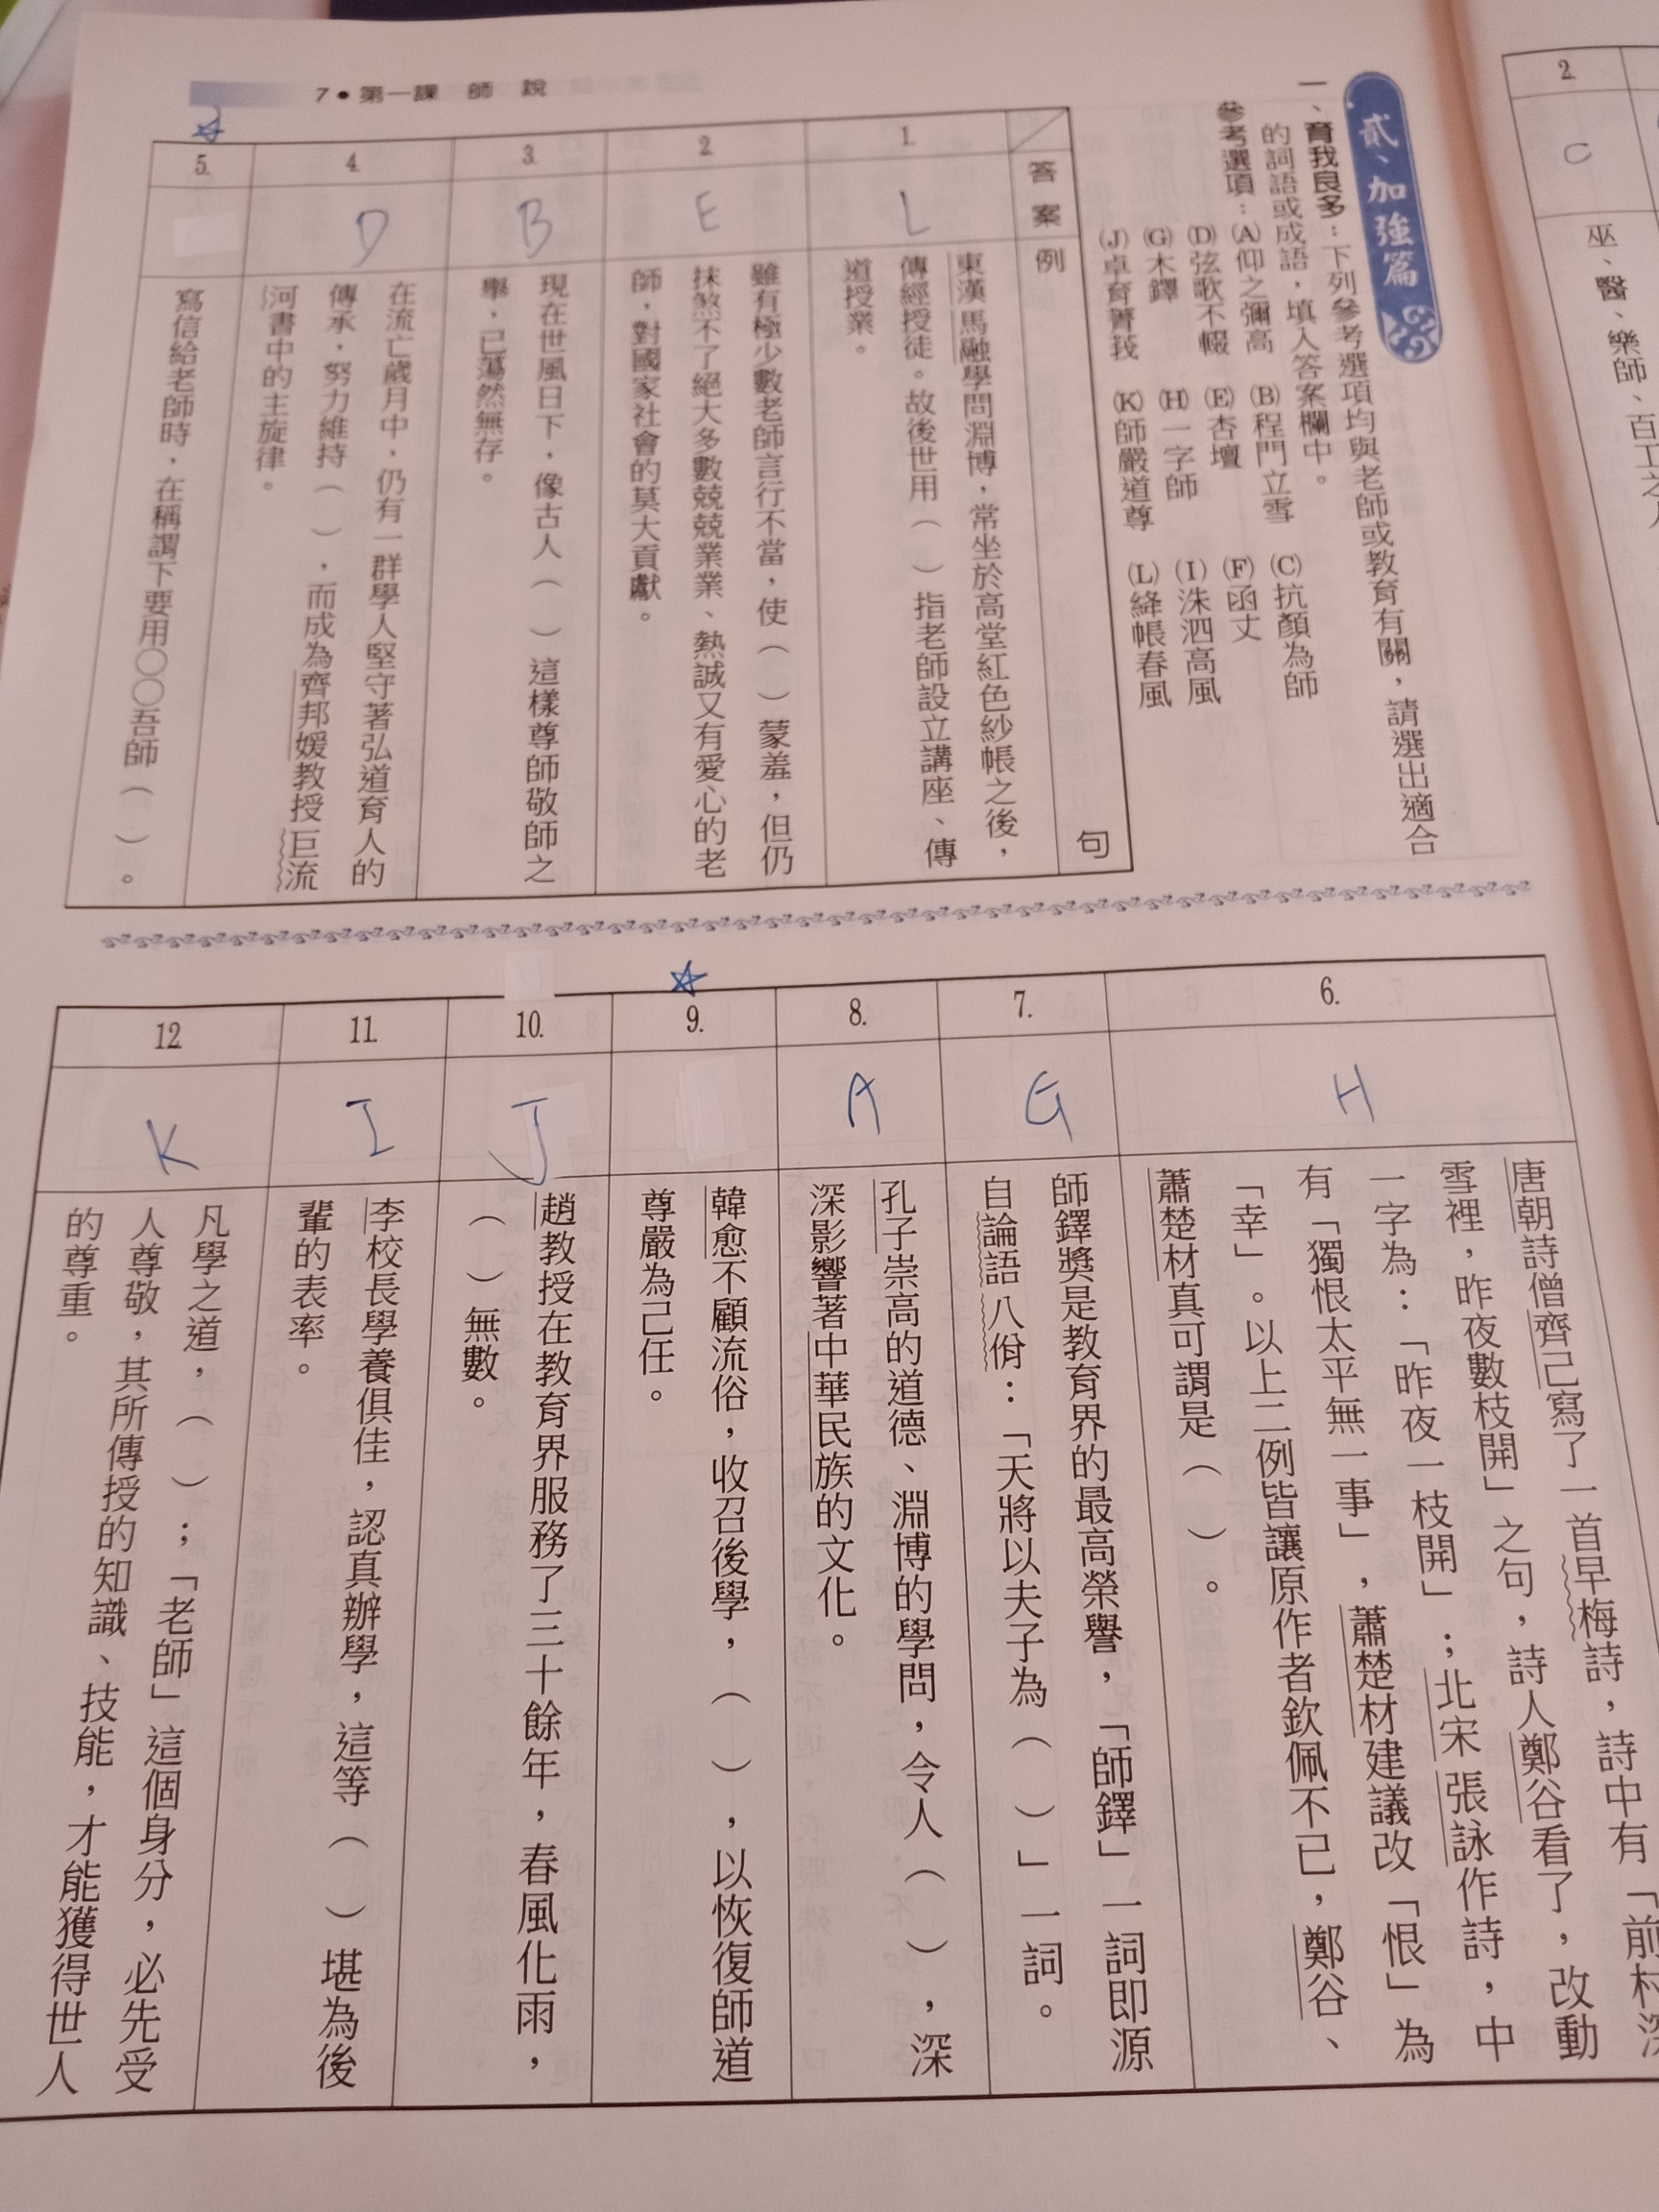 貳、加強篇
一、育我良多：下列參考選項均與老師或教育有關，請選出適合
的詞語或成語，填入答案欄中。
參考選項：(A)仰之彌高 (B)程門立雪 (C)抗顏為師
(D)弦歌不輟 (E)杏壇 (F)函丈
(G)木鐸 (H)一字師 (I)洙泗高風
(J)卓育菁莪 (K)師嚴道尊 (L)絳帳春風
答案 例句
1. L
東漢馬融學問淵博，常坐於高堂紅色紗帳之後，
傳經授徒。故後世用（ ）指老師設立講座、傳
道授業。
2. E
雖有極少數老師言行不當，使（ ）蒙羞，但仍
抹煞不了絕大多數兢兢業業、熱誠又有愛心的老
師，對國家社會的莫大貢獻。
3. B
現在世風日下，像古人（ ）這樣尊師敬師之
舉，已蕩然無存。
4. D
在流亡歲月中，仍有一群學人堅守著弘道育人的
傳承，努力維持（ ），而成為齊邦媛教授巨流
河書中的主旋律。
5.
寫信給老師時，在稱謂下要用〇〇吾師（ ）。
6. H
唐朝詩僧齊己寫了一首早梅詩，詩中有「前村深
雪裡，昨夜數枝開」之句，詩人鄭谷看了，改動
一字為：「昨夜一枝開」；北宋張詠作詩，中
有「獨恨太平無一事」，蕭楚材建議改「恨」為
「幸」。以上二例皆讓原作者欽佩不已，鄭谷、
蕭楚材真可謂是（ ）。
7. G
師鐸獎是教育界的最高榮譽，「師鐸」一詞即源
自論語八佾：「天將以夫子為（ ）」一詞。
8. A
孔子崇高的道德、淵博的學問，令人（ ），深
深影響著中華民族的文化。
9.
韓愈不顧流俗，收召後學，（ ），以恢復師道
尊嚴為己任。
10. J
趙教授在教育界服務了三十餘年，春風化雨，
（ ）無數。
11. I
李校長學養俱佳，認真辦學，這等（ ）堪為後
輩的表率。
12 K
凡學之道，（ ）；「老師」這個身分，必先受
人尊敬，其所傳授的知識、技能，才能獲得世人
的尊重。
7●第一課 師說
2. C
巫、醫、樂師、百工之人